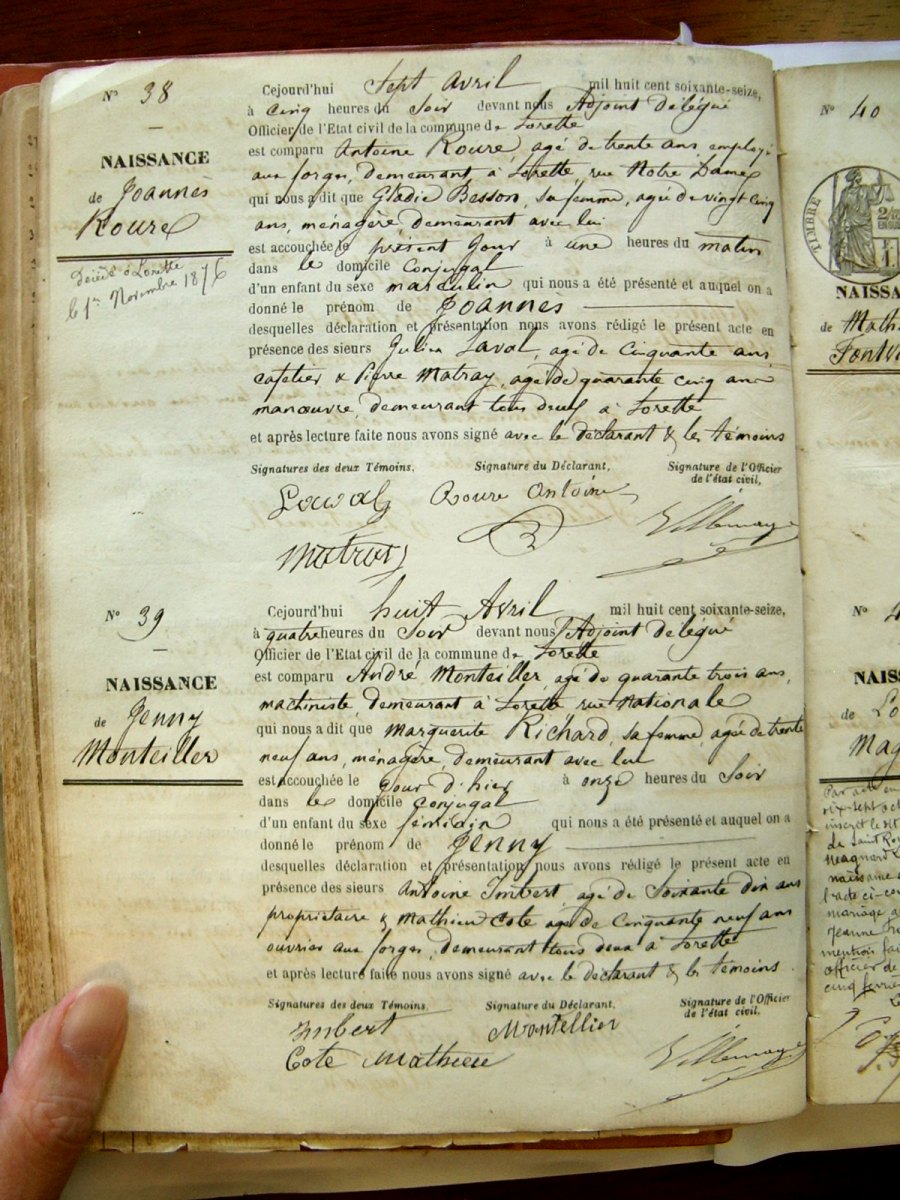 N° 38
NAISSANCE
de Joannès
Roure
Décédé à Lorette
le 1er Novembre 1876
Cejourd'hui Sept Avril mil huit cent soixante-seize,
à Cinq heures du Soir devant nous Adjoint Délégué
Officier de l'Etat civil de la commune de Lorette
est comparu Antoine Roure, agé de trente ans employé
aux forges, demeurant à Lorette, rue Notre Dame
qui nous a dit que Gladie Besson, sa femme, agée de vingt cinq
ans, ménagère, demeurant avec lui
est accouchée le présent jour à une heures du matin
dans le domicile Conjugal
d'un enfant du sexe masculin qui nous a été présenté et auquel on a
donné le prénom de Joannes
desquelles déclaration et présentation nous avons rédigé le présent acte en
présence des sieurs Julien Laval, agé de Cinquante ans
cafetier & Pierre Matray, agé de quarante cinq ans
manœuvre, demeurant tous deux à Lorette
et après lecture faite nous avons signé avec le déclarant & les témoins
Signatures des deux Témoins. Signature du Déclarant, Signature de l'Officier
de l'état civil,
Laval Roure Antoine
Matray
N° 39
NAISSANCE
de Jenny
Monteiller
Cejourd'hui huit Avril mil huit cent soixante-seize,
à quatre heures du Soir devant nous Adjoint Délégué
Officier de l'Etat civil de la commune de Lorette
est comparu André Monteiller, agé de quarante trois ans,
machiniste, demeurant à Lorette rue Nationale
qui nous a dit que Marguerite Richard, sa femme, agée de trente
neuf ans, ménagère, demeurant avec lui
est accouchée le jour d'hier à onze heures du Soir
dans le domicile Conjugal
d'un enfant du sexe féminin qui nous a été présenté et auquel on a
donné le prénom de Jenny
desquelles déclaration et présentation nous avons rédigé le présent acte en
présence des sieurs Antoine Imbert, agé de Soixante dix ans
propriétaire & Mathieu Cote agé de Cinquante neuf ans
ouvrier aux forges, demeurant tous deux à Lorette
et après lecture faite nous avons signé avec le déclarant & les témoins
Signatures des deux Témoins. Signature du Déclarant, Signature de l'Officier
de l'état civil,
Imbert Montellier
Cote Mathieu
N° 40
TIMBRE
de
N°
de